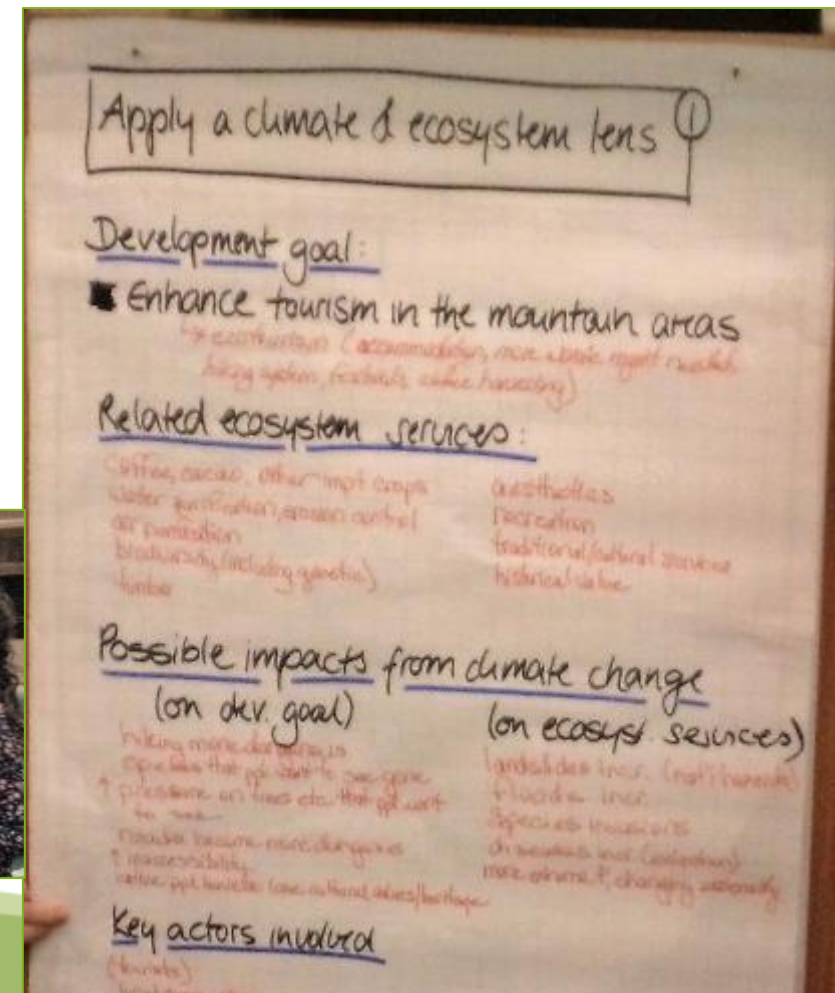 Apply a climate & ecosystem lens 1
Development goal:
Enhance tourism in the mountain areas
ecotourism (accommodation, more waste mgmt needed
hiking system, festivals, coffee harvesting)
Related ecosystem services:
coffee, cacao, other impt crops
water purification, erosion control
air purification
biodiversity (including genetic)
timber
aesthetics
recreation
traditional/cultural services
historical value
Possible impacts from climate change
(on dev. goal)
hiking more dangerous
species that ppl want to see gone
↑ pressure on trees etc. that ppl want
to see
roads become more dangerous
↑ inaccessibility
native ppl lose cultural values/heritage
(on ecosyst. services)
landslides incr. (nat'l hazards)
floods incr.
species invasions
diseases incr.
more extreme changing seasonality
Key actors involved
(tourists)